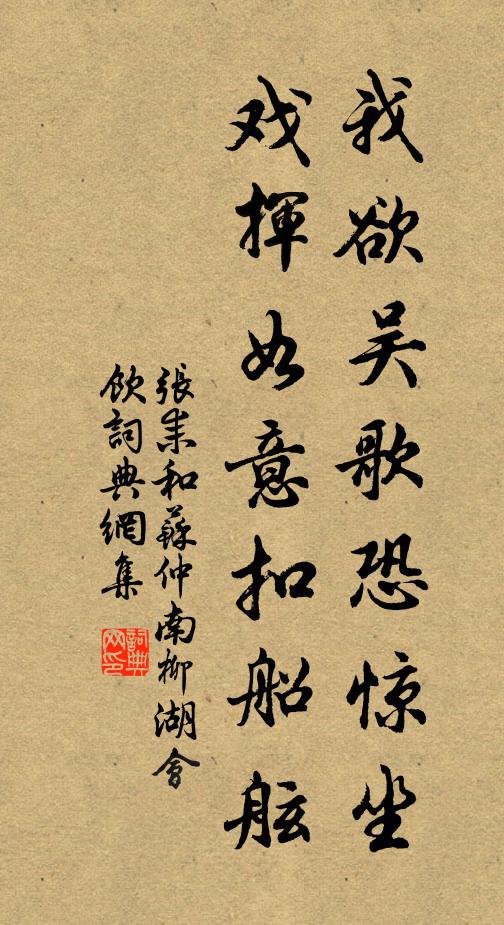 我欲吴歌恐惊坐
戏揮如意扣船舷
張耒和蘇仲南柳湖會
飲詞典網集
詞典
网印